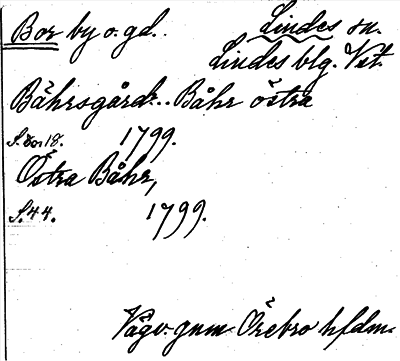 Bor by o. gd.
Lindes sn.
Lindes blg. Vst.
Båhrsgårdz.. Båhr östra
S. 18. 1799.
Östra Båhr,
S. 44. 1799.
Vägv. gnm. Örebro hfdm.